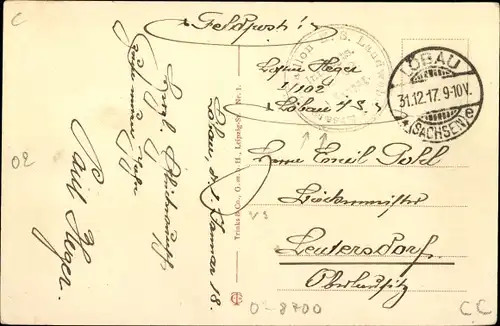 C
Feldpost!
LÖBAU
31.12.17. 9-10V.
* (SACHSEN) e
Heger
I/102
Löbau i/S.
Herrn Emil Pohl
Leutersdorf
Oberlausitz
Löbau, d. 1. Januar 18.
Herzl. Glückwunsch
zum neuen Jahre
Paul Heger.
Trinks & Co., G. m. b. H., Leipzig
02
VS
0-8700
CC